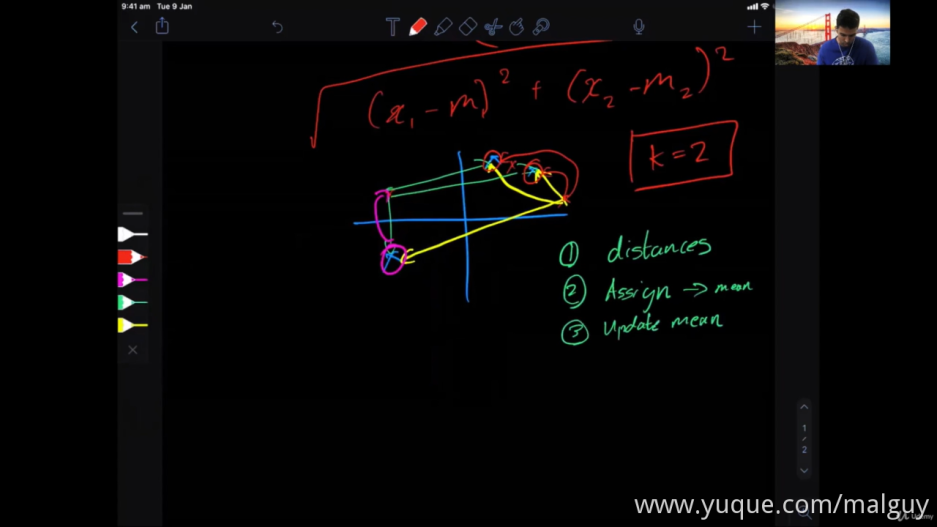 9:41 am Tue 9 Jan
√(x₁ - m₁)² + (x₂ - m₂)²
k = 2
① distances
② Assign → mean
③ Update mean
1
/
2
www.yuque.com/malguy
Udemy